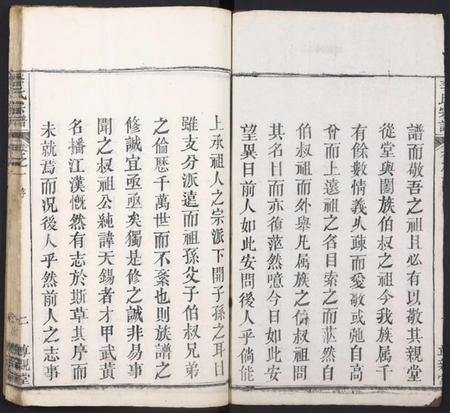 譜而敬吾之祖且必有以敬其親堂
從堂與闔族伯叔之祖今我族属千
有餘數情義乆疎而愛敬或弛自高
曾而上遠祖之名目索之而茫然自
伯叔祖而外舉凡属族之伯叔祖問
其名目而亦復茫然噫今日如此安
望異日前人如此安問後人乎倘能
上承祖人之宗派下開子孫之耳目
雖支分派遠而祖孫父子伯叔兄弟
之倫歷千萬世而不紊也則族譜之
修誠宜亟亟矣獨是修之誠非易事
聞之叔祖公純諱天錫者才甲武黃
名播江漢慨然有志於斯草其序而
未就焉而況後人乎然前人之志事
氏宗譜
卷之一
序
七
親堂